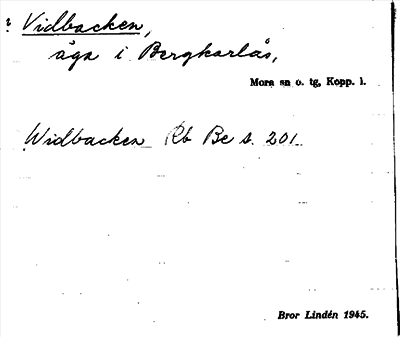 ? Vidbacken,
äga i Bergkarlås,
Mora sn o. tg, Kopp. l.
Widbacken Rb Be s. 201
Bror Lindén 1945.